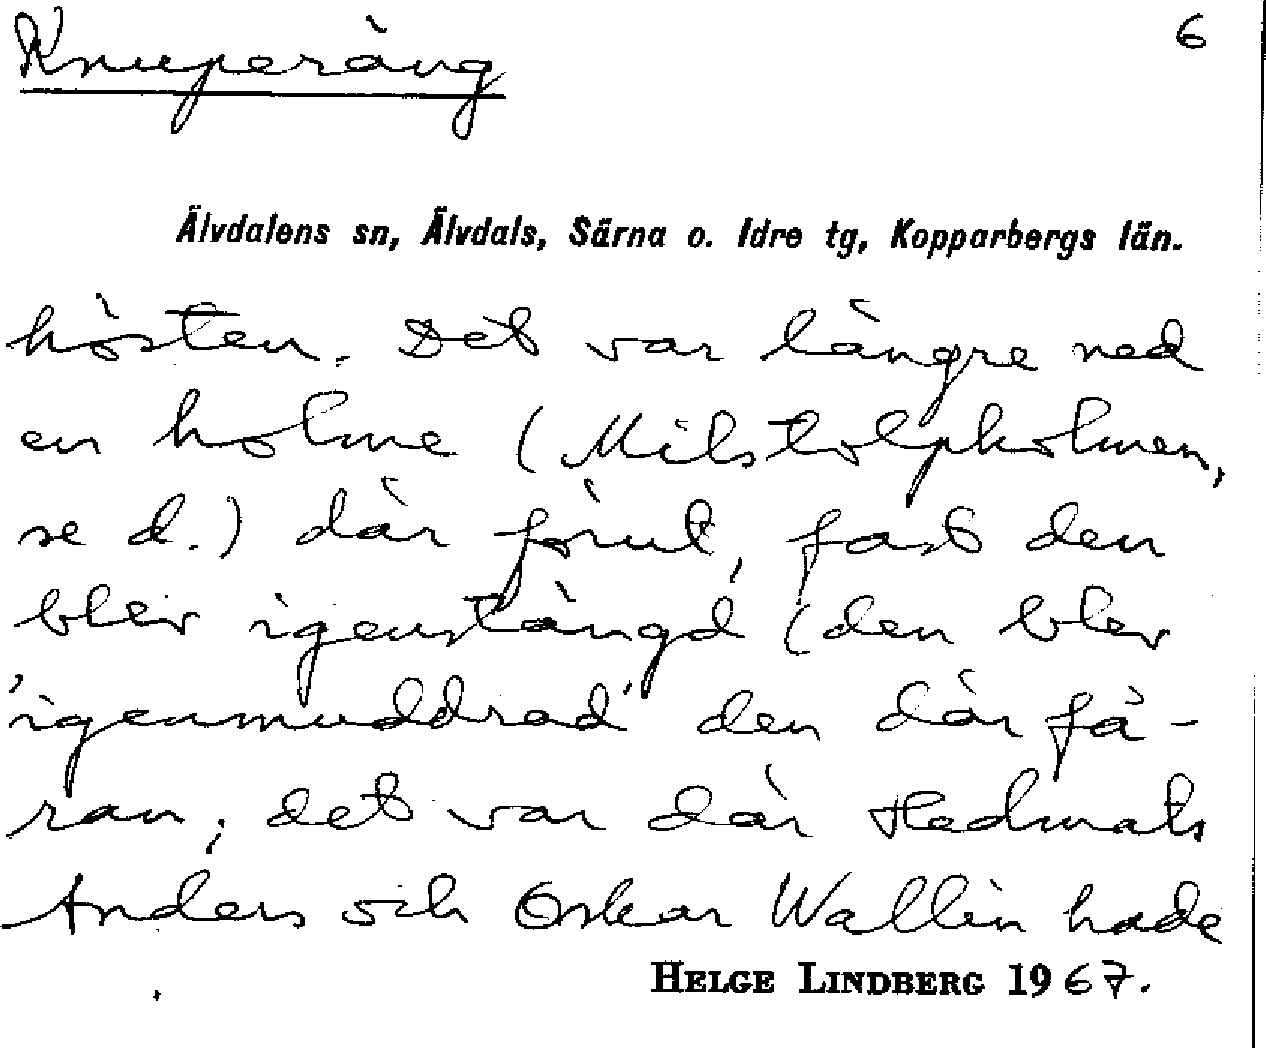 Knuperäng 6
Älvdalens sn, Älvdals, Särna o. Idre tg, Kopparbergs län.
hösten. Det var längre ned
en holme (Milstolpholmen,
se d.) där förut, fast den
blev igenstängd, (den blev
'igenmuddrad' den där få-
ran; det var där Hedmats
Anders och Oskar Wallin hade
HELGE LINDBERG 1967.